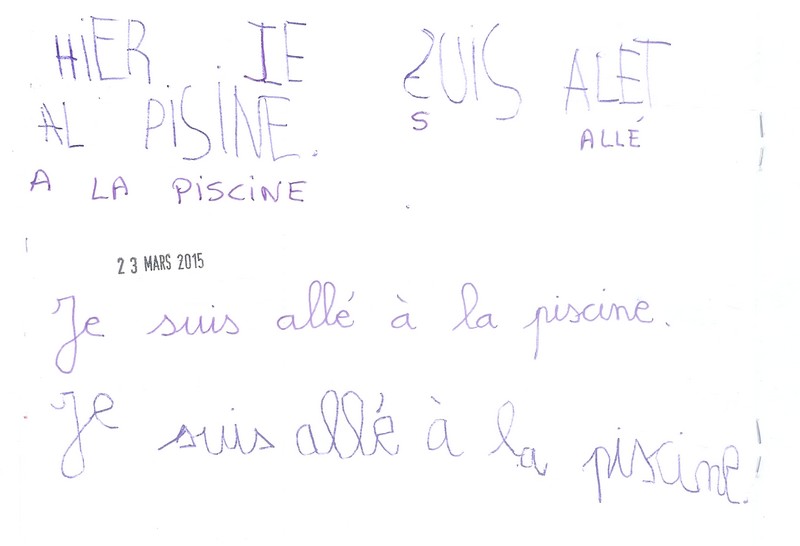 HiER JE SUIS ALET
AL PISINE.
S ALLÉ
A LA PiSCiNE
23 MARS 2015
Je suis allé à la piscine.
Je suis allé à la piscine.